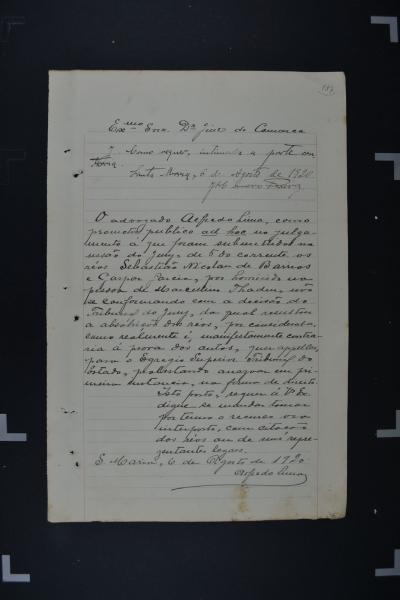 Exmo Snr. Dr. Juiz de Comarca
J. Como requer, intimada a parte con
traria.
Santa Maria, 6 de Agosto de 1920
O advogado Alfredo Luna, como
promotor publico ad hoc no julga-
mento a que foram submettidos na
sessão do Jury, de 5 do corrente os
réos Sebastião Nicolau de Barros
e Gaspar Garcia, por homicidio na
pessoa de Marcellino Thadeu, não
se conformando com a decisão do
Tribunal do Jury, da qual resultou
a absolvição dos réos, por consideral-a,
como realmente é, manifestamente contra-
ria á prova dos autos, quer appellar,
para o Egregio Superior Tribunal do
Estado, protestando arrazoar em pri-
meira instancia, na forma de direito.
Isto posto, requer a V. Ex.
digne-se mandar tomar
por termo o recurso ora
interposto, com citação
dos réos ou de seus repre-
zentantes legaes.
S. Maria, 6 de Agosto de 1920
Alfredo Luna